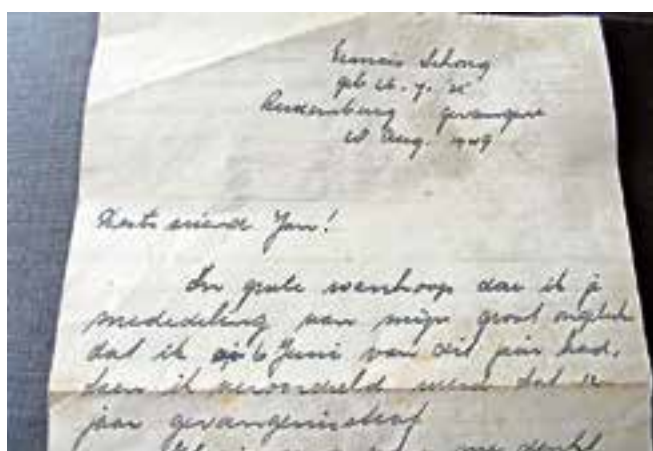 Francis Schong
geb 26. 7. '25
Luxemburg gevangen
20 Aug. 1949
Beste vriend Jan!
In grote wanhoop doe ik je
mededeling van mijn groot ongeluk
dat ik op 6 Juni van dit jaar had,
toen ik veroordeeld werd tot 12
jaar gevangenisstraf